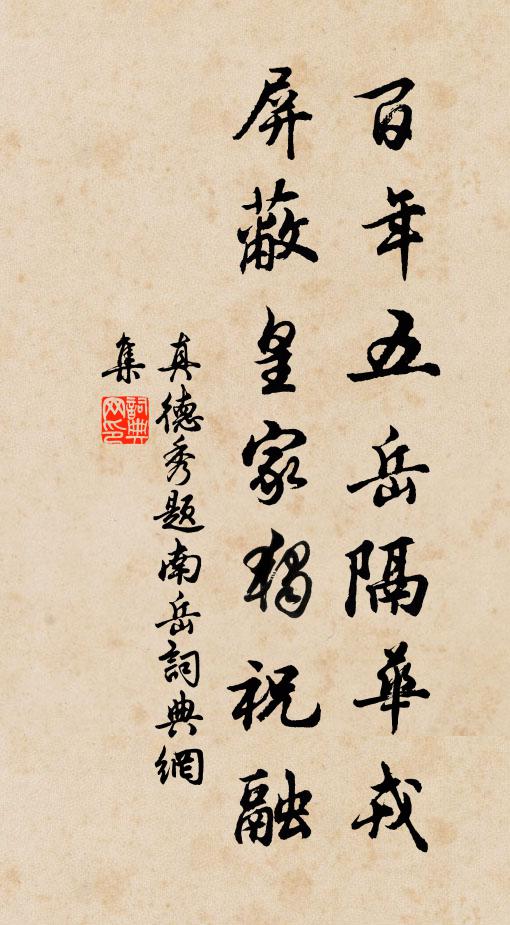 百年五岳隔華戎
屏蔽皇家獨祝融
真德秀題南岳詞典網
集
詞典网印